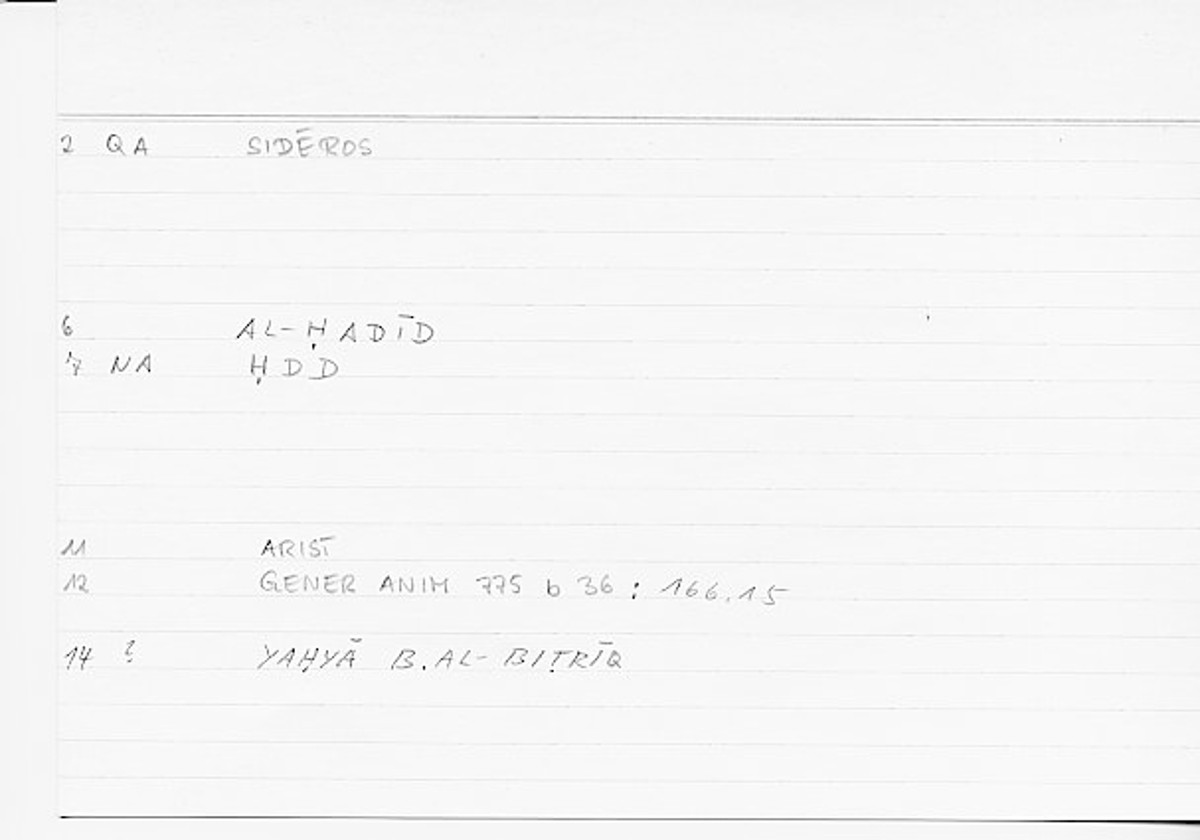 2 QA SIDĒROS
6 AL-ḤADĪD
7 NA ḤDD
11 ARIST
12 GENER ANIM 775 b 36 : 166.15
14 ? YAḤYĀ B. AL-BIṬRĪQ